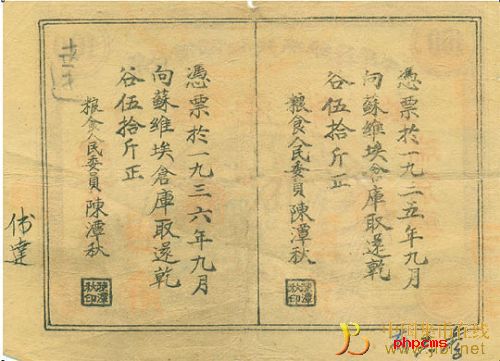 憑票於一九三五年九月
向蘇維埃倉庫取還乾
谷伍拾斤正
粮食人民委員陳潭秋
陳潭秋印
憑票於一九三六年九月
向蘇維埃倉庫取還乾
谷伍拾斤正
粮食人民委員陳潭秋
陳潭秋印
phpcms